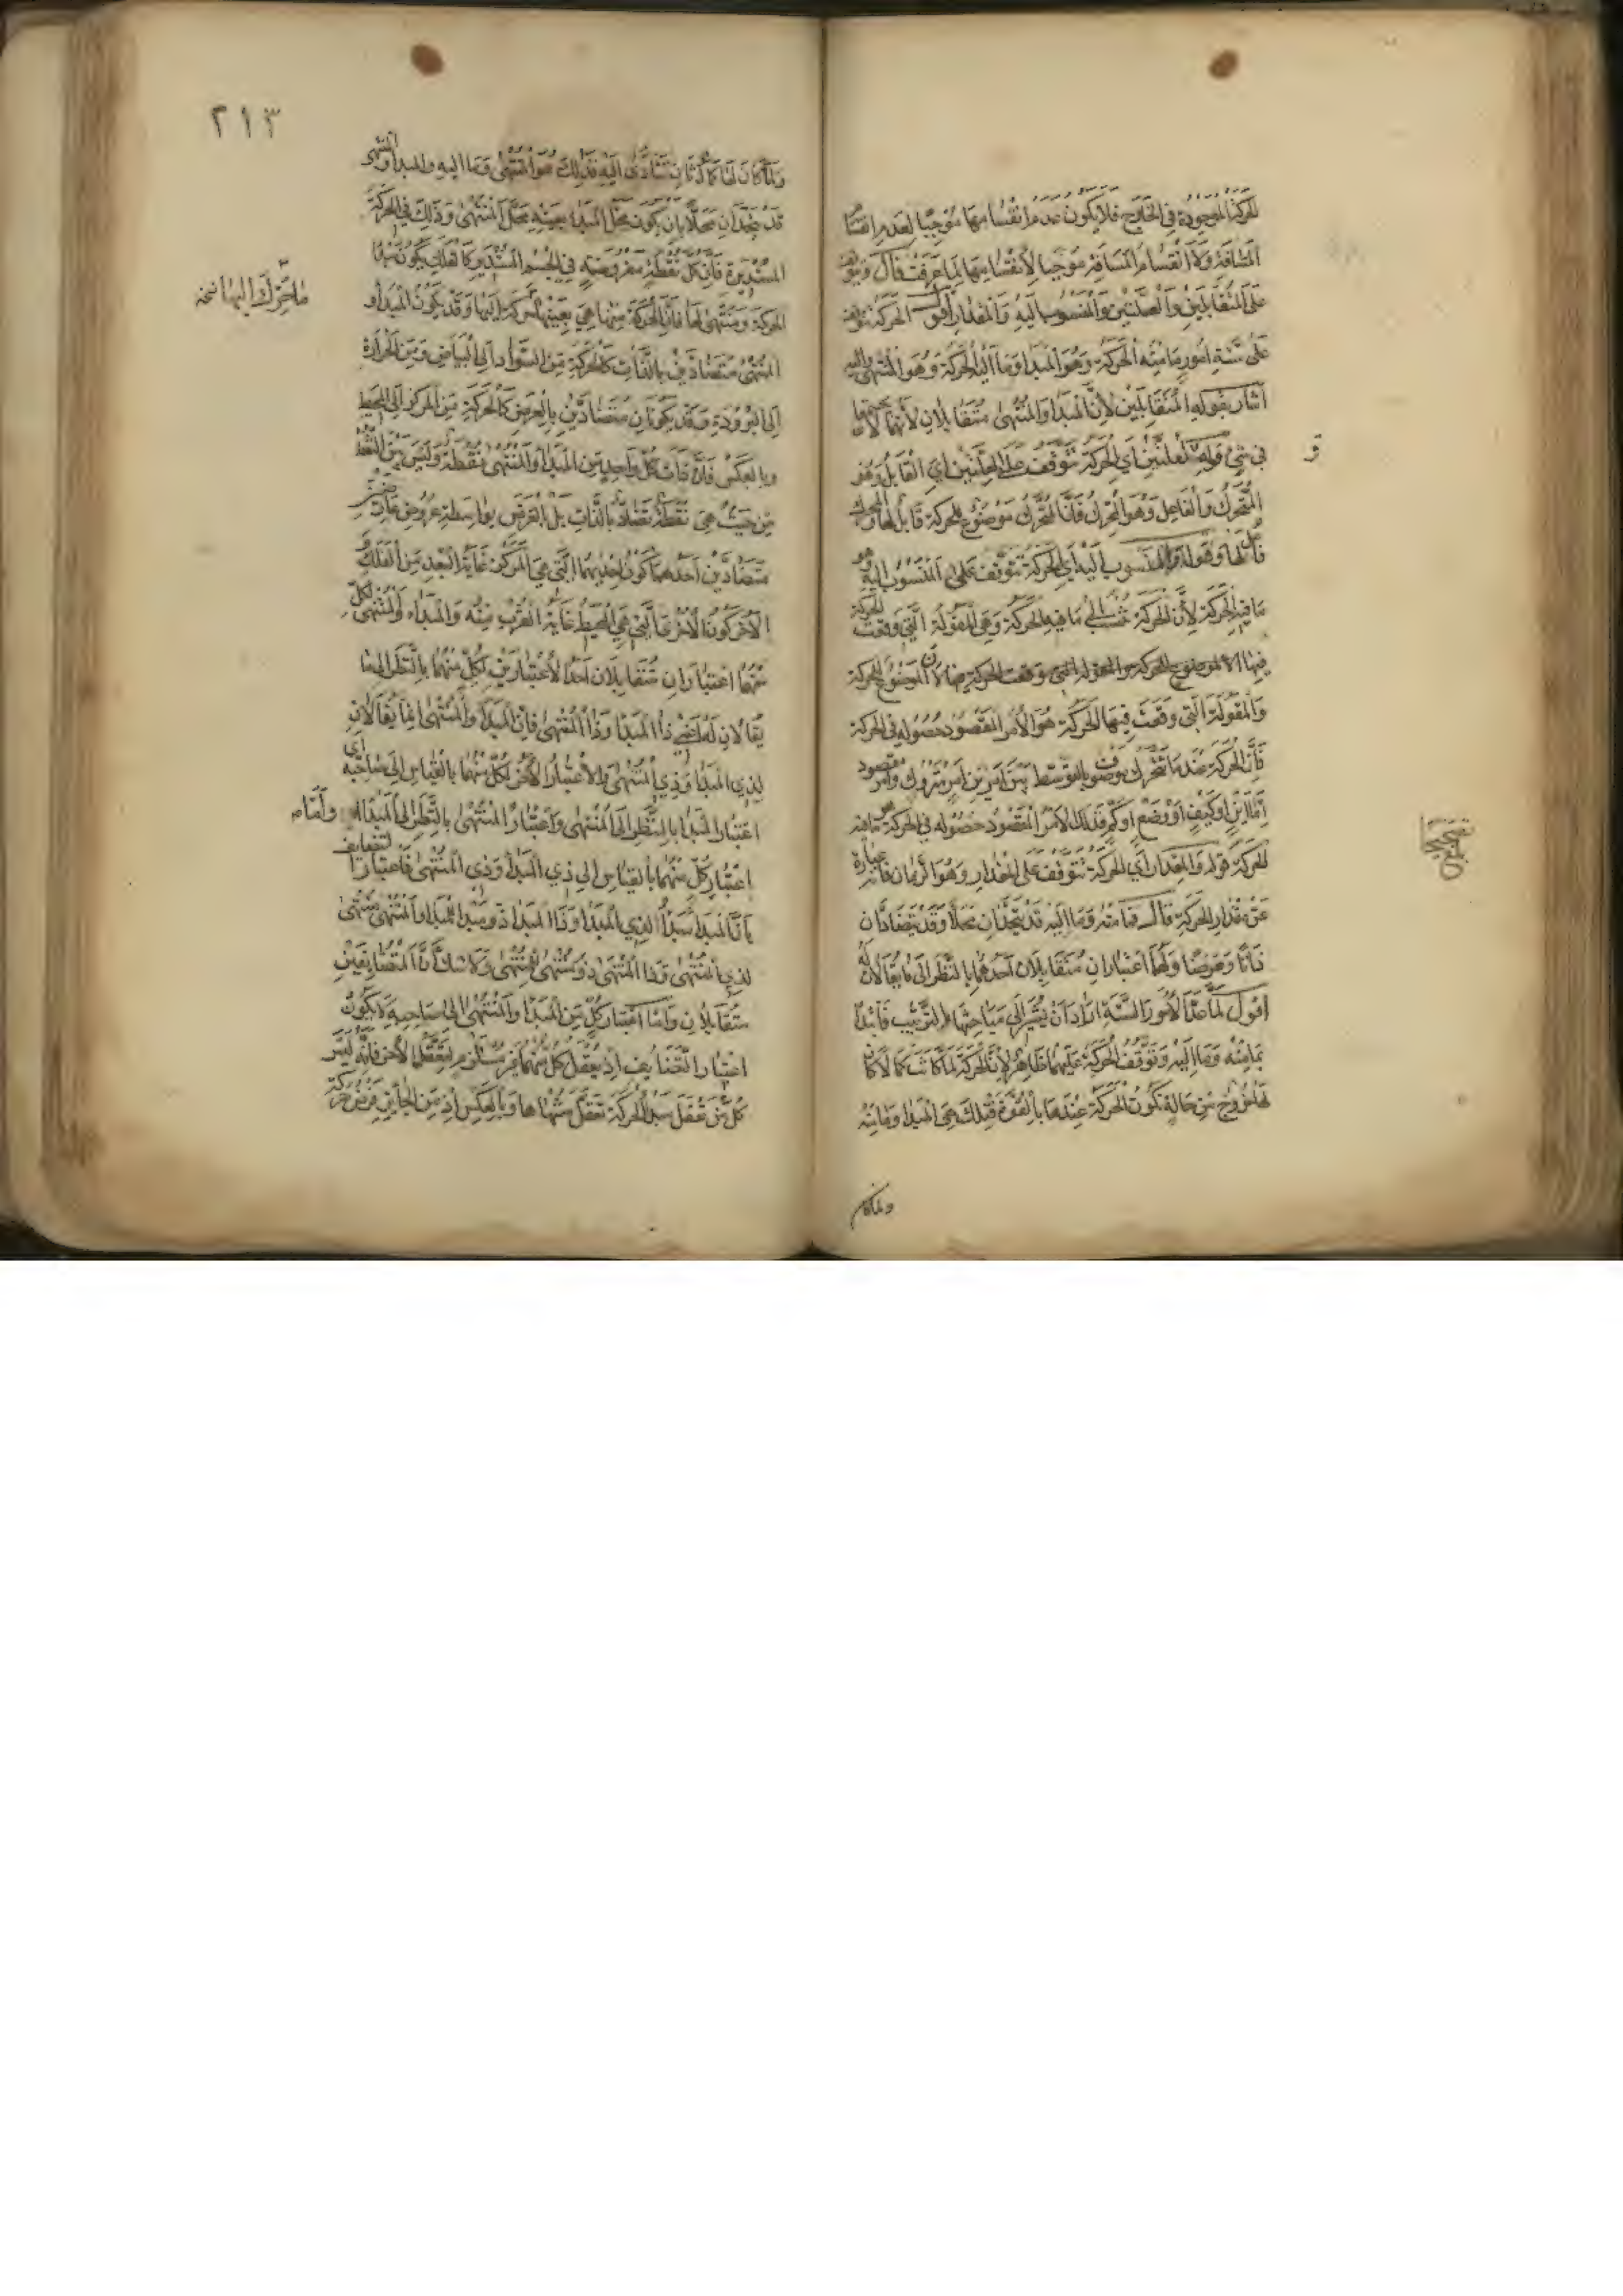 للحركة الموجودة في الخارج فلا يكون عدم انقسامها موجبا لعدم انقسام
المسافة ولا انقسام المسافة موجبا لانقسامها لما عرفت قال ويتوقف
على المتقابلين والعلتين والمنسوب اليه والمقدار اقول الحركة تتوقف
على ستة امور ما منه الحركة وهو المبدا وما اليه الحركة وهو المنتهى واليه
اشار بقوله المتقابلين لان المبدا والمنتهى متقابلان لانهما لا يجتمعان
في شيء قوله والعلتين اي الحركة تتوقف على العلتين اي القابل وهو
المتحرك والفاعل وهو المحرك فان المتحرك موضوع للحركة قابل لها والمحرك
فاعل لها وقوله والمنسوب اليه اي الحركة تتوقف على المنسوب اليه وهو
ما فيه الحركة لان الحركة تنسب الى ما فيه الحركة وهي المقولة التي وقعت الحركة
فيها لان الموضوع للحركة
والمقولة التي وقعت فيها الحركة هو الامر المقصود حصوله في الحركة
فان الحركة عند ما تتحرك موصوف بالتوسط بين امرين امر متروك وامر مقصود
اما اين او كيف او وضع او كم فذلك الامر المقصود حصوله في الحركة هو ما فيه
الحركة قوله والمقدار اي الحركة تتوقف على المقدار وهو الزمان فانه عبارة
عن مقدار الحركة قال فما منه وما اليه قد يتحدان محلا وقد يتضادان
ذاتا وعرضا ولهما اعتباران متقابلان احدهما بالنظر الى ما يقالان له
اقول لما عد الامور الستة اراد ان يشير الى مباحثها على الترتيب فابتدا
بما منه وما اليه وتوقف الحركة عليهما ظاهر لان الحركة لما كانت كمالا كان
لها خروج من حالة تكون الحركة عندها بالقوة فتلك هي المبدا وما منه
ولما كان
٢١٣
ولما كان لها كمال ثان تتادى اليه فذلك هو المنتهى وما اليه والمبدا والمنتهى
قد يتحدان محلا بان يكون محل المبدا بعينه محل المنتهى وذلك في الحركة
المستديرة فان كل نقطة مفروضة في الجسم المستدير كالفلك يكون مبدا
الحركة ومنتهى لها فان الحركة منها هي بعينها الحركة اليها وقد يكون المبدا و
المنتهى متضادين بالذات كالحركة من السواد الى البياض ومن الحرارة
الى البرودة وقد يكونان متضادين بالعرض كالحركة من المركز الى المحيط
وبالعكس فان ذات كل واحد من المبدا والمنتهى نقطة وليس بين النقط
من حيث هي نقطة تضاد بالذات بل بالعرض بواسطة عروض عارضين
متضادين احدهما كون احديهما التي هي المركز غاية البعد من الفلك و
الاخر كون الاخرى التي هي المحيط غاية القرب منه والمبدا والمنتهى لكل
منهما اعتباران متقابلان احد الاعتبارين لكل منهما بالنظر الى ما
يقالان له اعني ذا المبدا وذا المنتهى فان المبدا والمنتهى انما يقالان
لذي المبدا وذي المنتهى والاعتبار الاخر لكل منهما بالقياس الى صاحبه اي
اعتبار المبدا بالنظر الى المنتهى واعتبار المنتهى بالنظر الى المبدا واما
اعتبار كل منهما بالقياس الى ذي المبدا وذي المنتهى فاعتبار التضايف
فان المبدا مبدا لذي المبدا وذا المبدا ذو مبدا للمبدا والمنتهى منتهى
لذي المنتهى وذا المنتهى ذو منتهى للمنتهى ولا شك ان المتضايفين
متقابلان واما اعتبار كل من المبدا والمنتهى الى صاحبه لا يكون
اعتبار التضايف اذ تعقل كل منهما غير مستلزم لتعقل الاخر فانه ليس
كل من عقل مبدا الحركة تعقل منتهاها وبالعكس اذ من الجائز فرض حركة